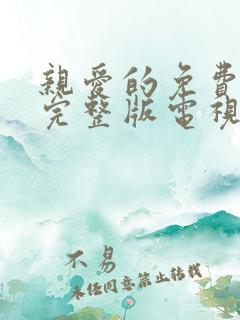 親愛的免費
完整版電視
不易
未經同意禁止轉載